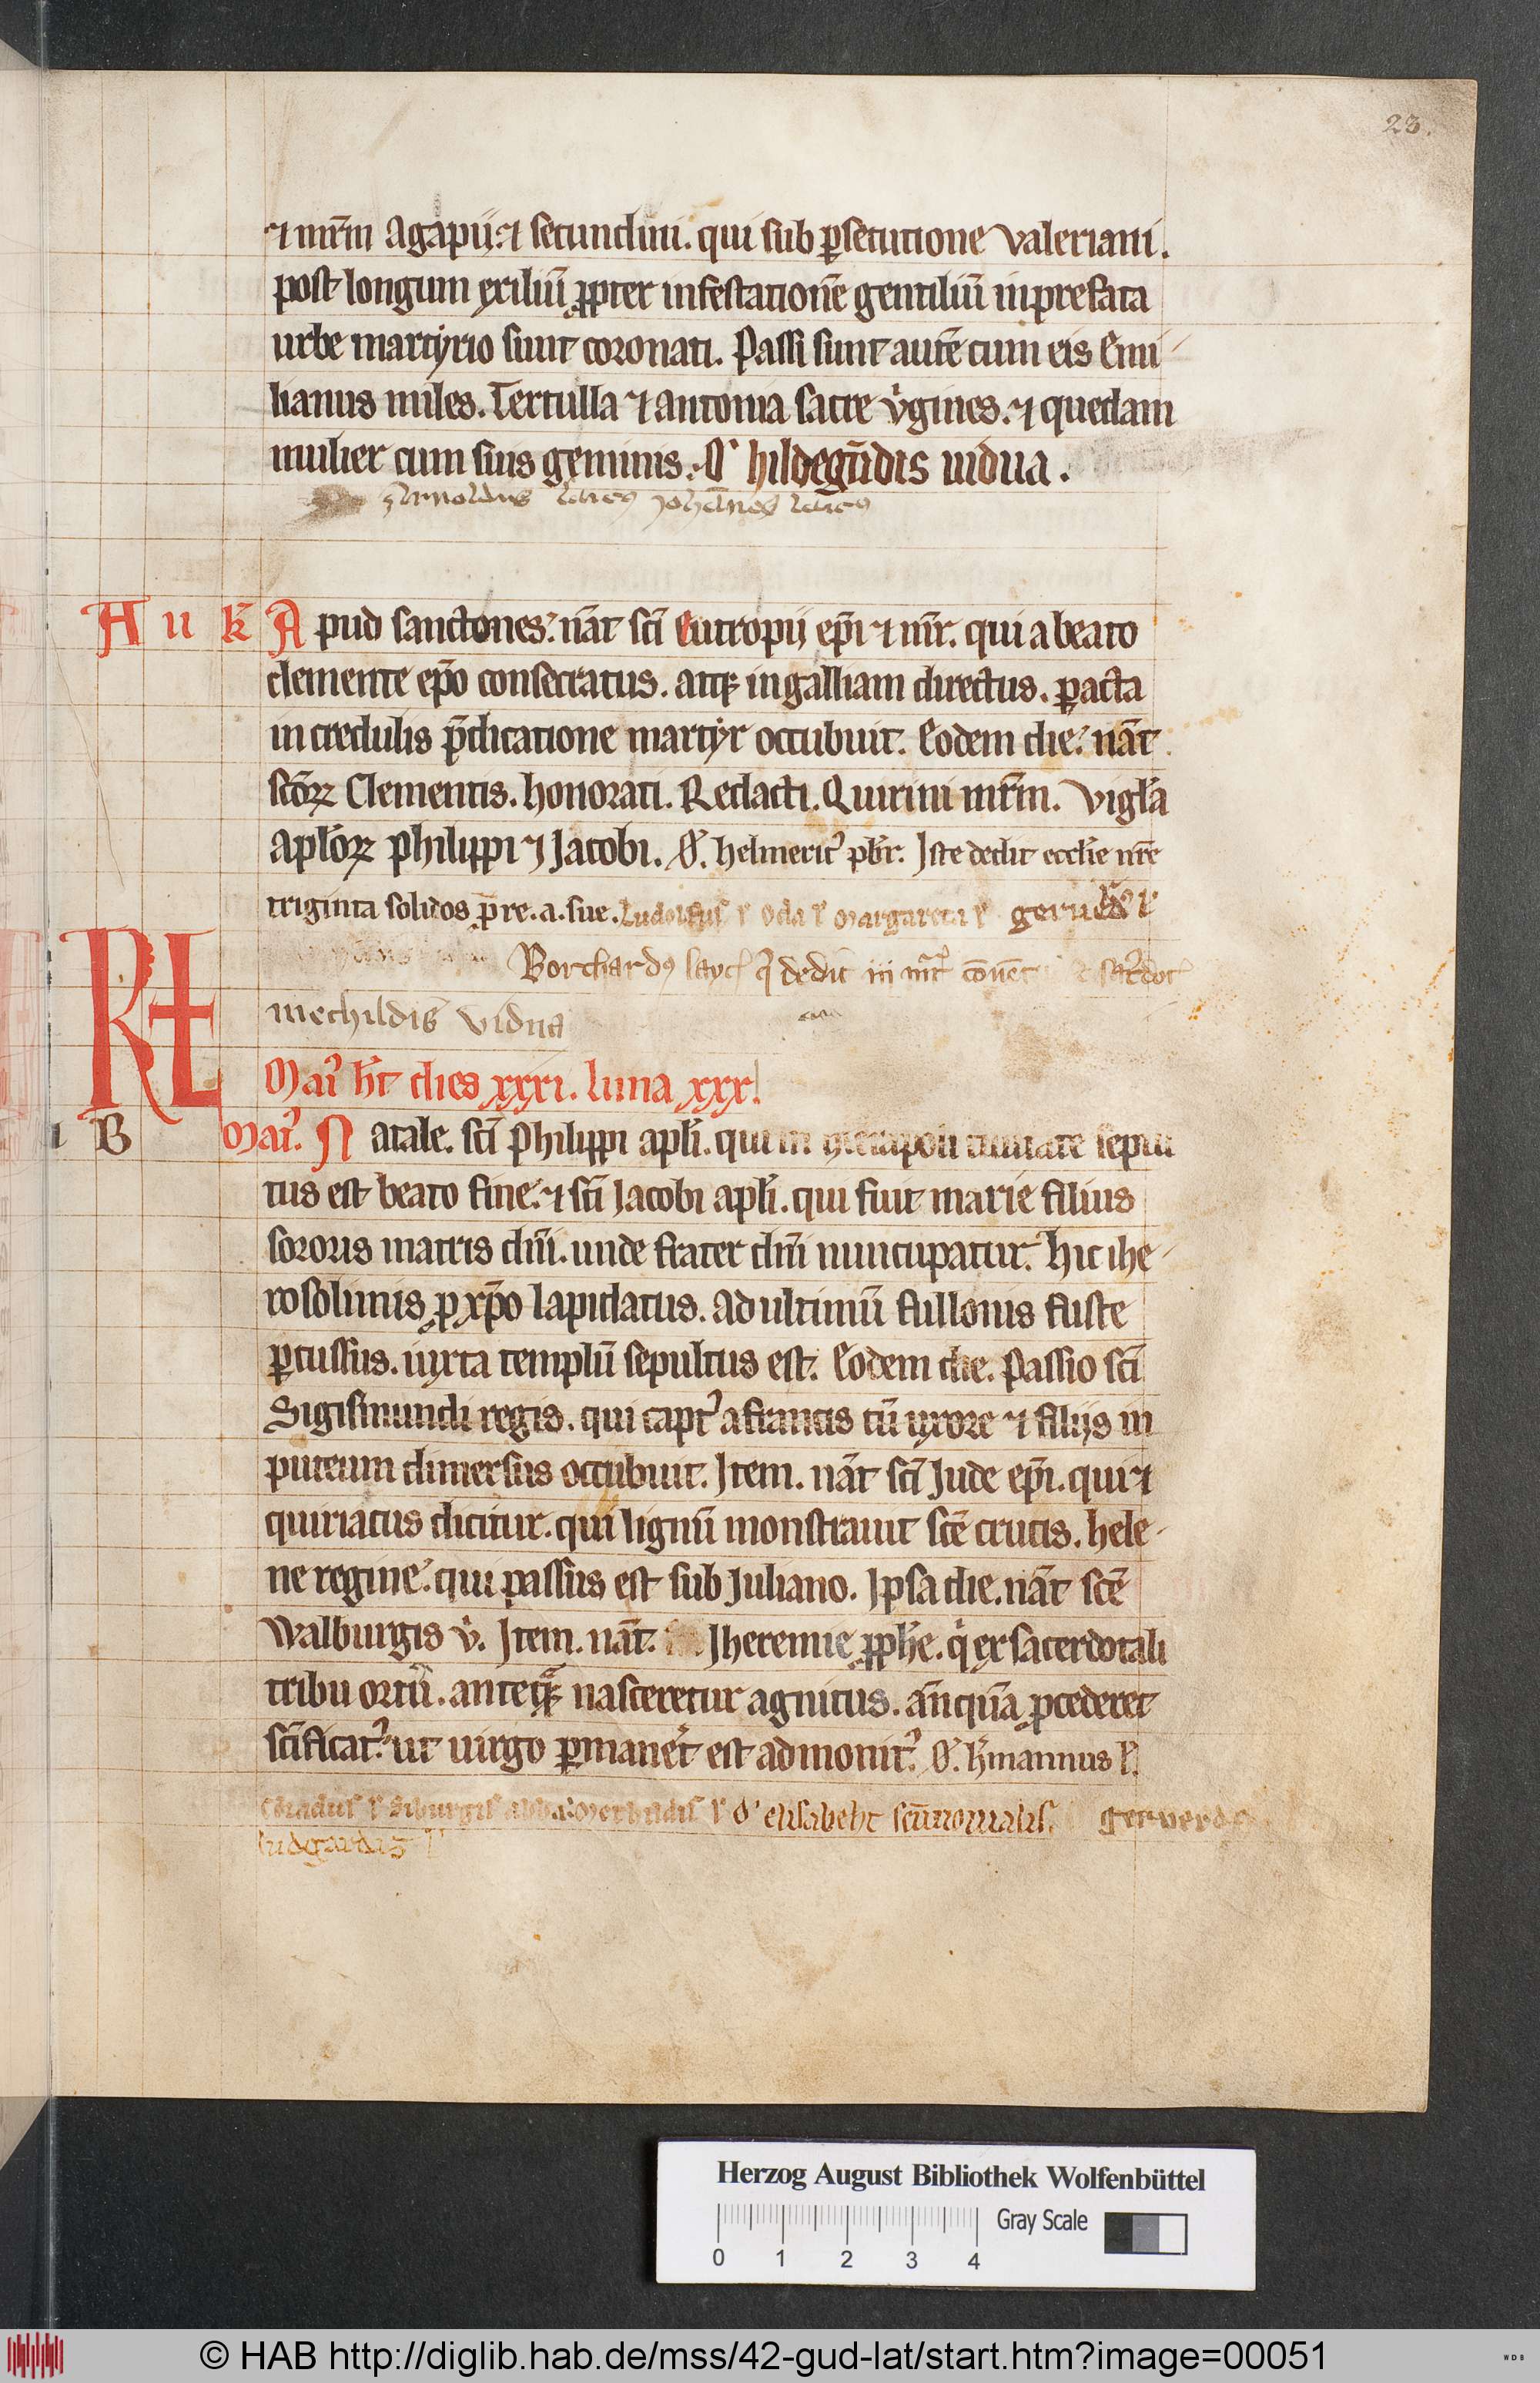 23.
⁊ mr̄m Agapij. ⁊ secundini. qui sub ꝑsecutione valeriani.
post longum exiliū ꝓpter infestationē gentiliū in prefata
urbe martyrio sunt coronati. Passi sunt autē cum eis Emi
lianus miles. Tertulla ⁊ antonia sacre v̓gines. ⁊ quedam
mulier cum suis geminis. O' hildegūdis uidua.
Arnoldus laicꝰ Johānes laicꝰ
A u k̄ Apud sanctones. nāt sc̄i Eutropij ep̄i ⁊ mr̄. qui a beato
clemente ep̄o consecratus. atqꝫ in galliam directus. ꝑacta
in credulis p̄dicatione martyr occubuit. Eodem die. nāt
sc̄oꝝ Clementis. honorati. Redacti. Quirini mr̄m. Vigl̄a
Apl̄oꝝ Philippi ⁊ Jacobi. O'. helmericꝰ pbr̄. Iste dedit eccl̄ie nr̄e
triginta solidos p̄ re. a. sue. Ludolfus l' Oda l' Margareta l'
Borchardꝰ layc' q̄ dedit iij mr̄c
mechildis vidua
KL
Maiꝰ h̄t dies xxxi. luna xxx.
B Maiꝰ. Natale. sc̄i Philippi apl̄i. qui in ciuitate sepul
tus est beato fine. ⁊ sc̄i Jacobi apl̄i. qui fuit marie filius
sororis matris dn̄i. unde frater dn̄i nuncupatur. Hic ihe
rosolimis ꝓ xp̄o lapidatus. ad ultimū fullonis fuste
ꝑcussus. iuxta templū sepultus est. Eodem die. Passio sc̄i
Sigismundi regis. qui captꝰ a francis cū uxore ⁊ filijs in
puteum dimersus occubuit. Item. nāt sc̄i Jude ep̄i. qui ⁊
quiriacus dicitur. qui lignū monstrauit sc̄e crucis. hele
ne regine. qui passus est sub Juliano. Ipsa die. nāt sc̄e
Walburgis v̓. Item. nāt. Jheremie ꝓph̄e. qi ex sacerdotali
tribu ortꝰ. anteqꝫ nasceretur agnitus. an̄quā ꝓcederet
sc̄ificatꝰ. ut uirgo ꝑmaneret est admonitꝰ. O'. h̄mannus l'.
O' elisabeht scīmonialis.
ludgardis
Herzog August Bibliothek Wolfenbüttel
0 1 2 3 4 Gray Scale
© HAB http://diglib.hab.de/mss/42-gud-lat/start.htm?image=00051